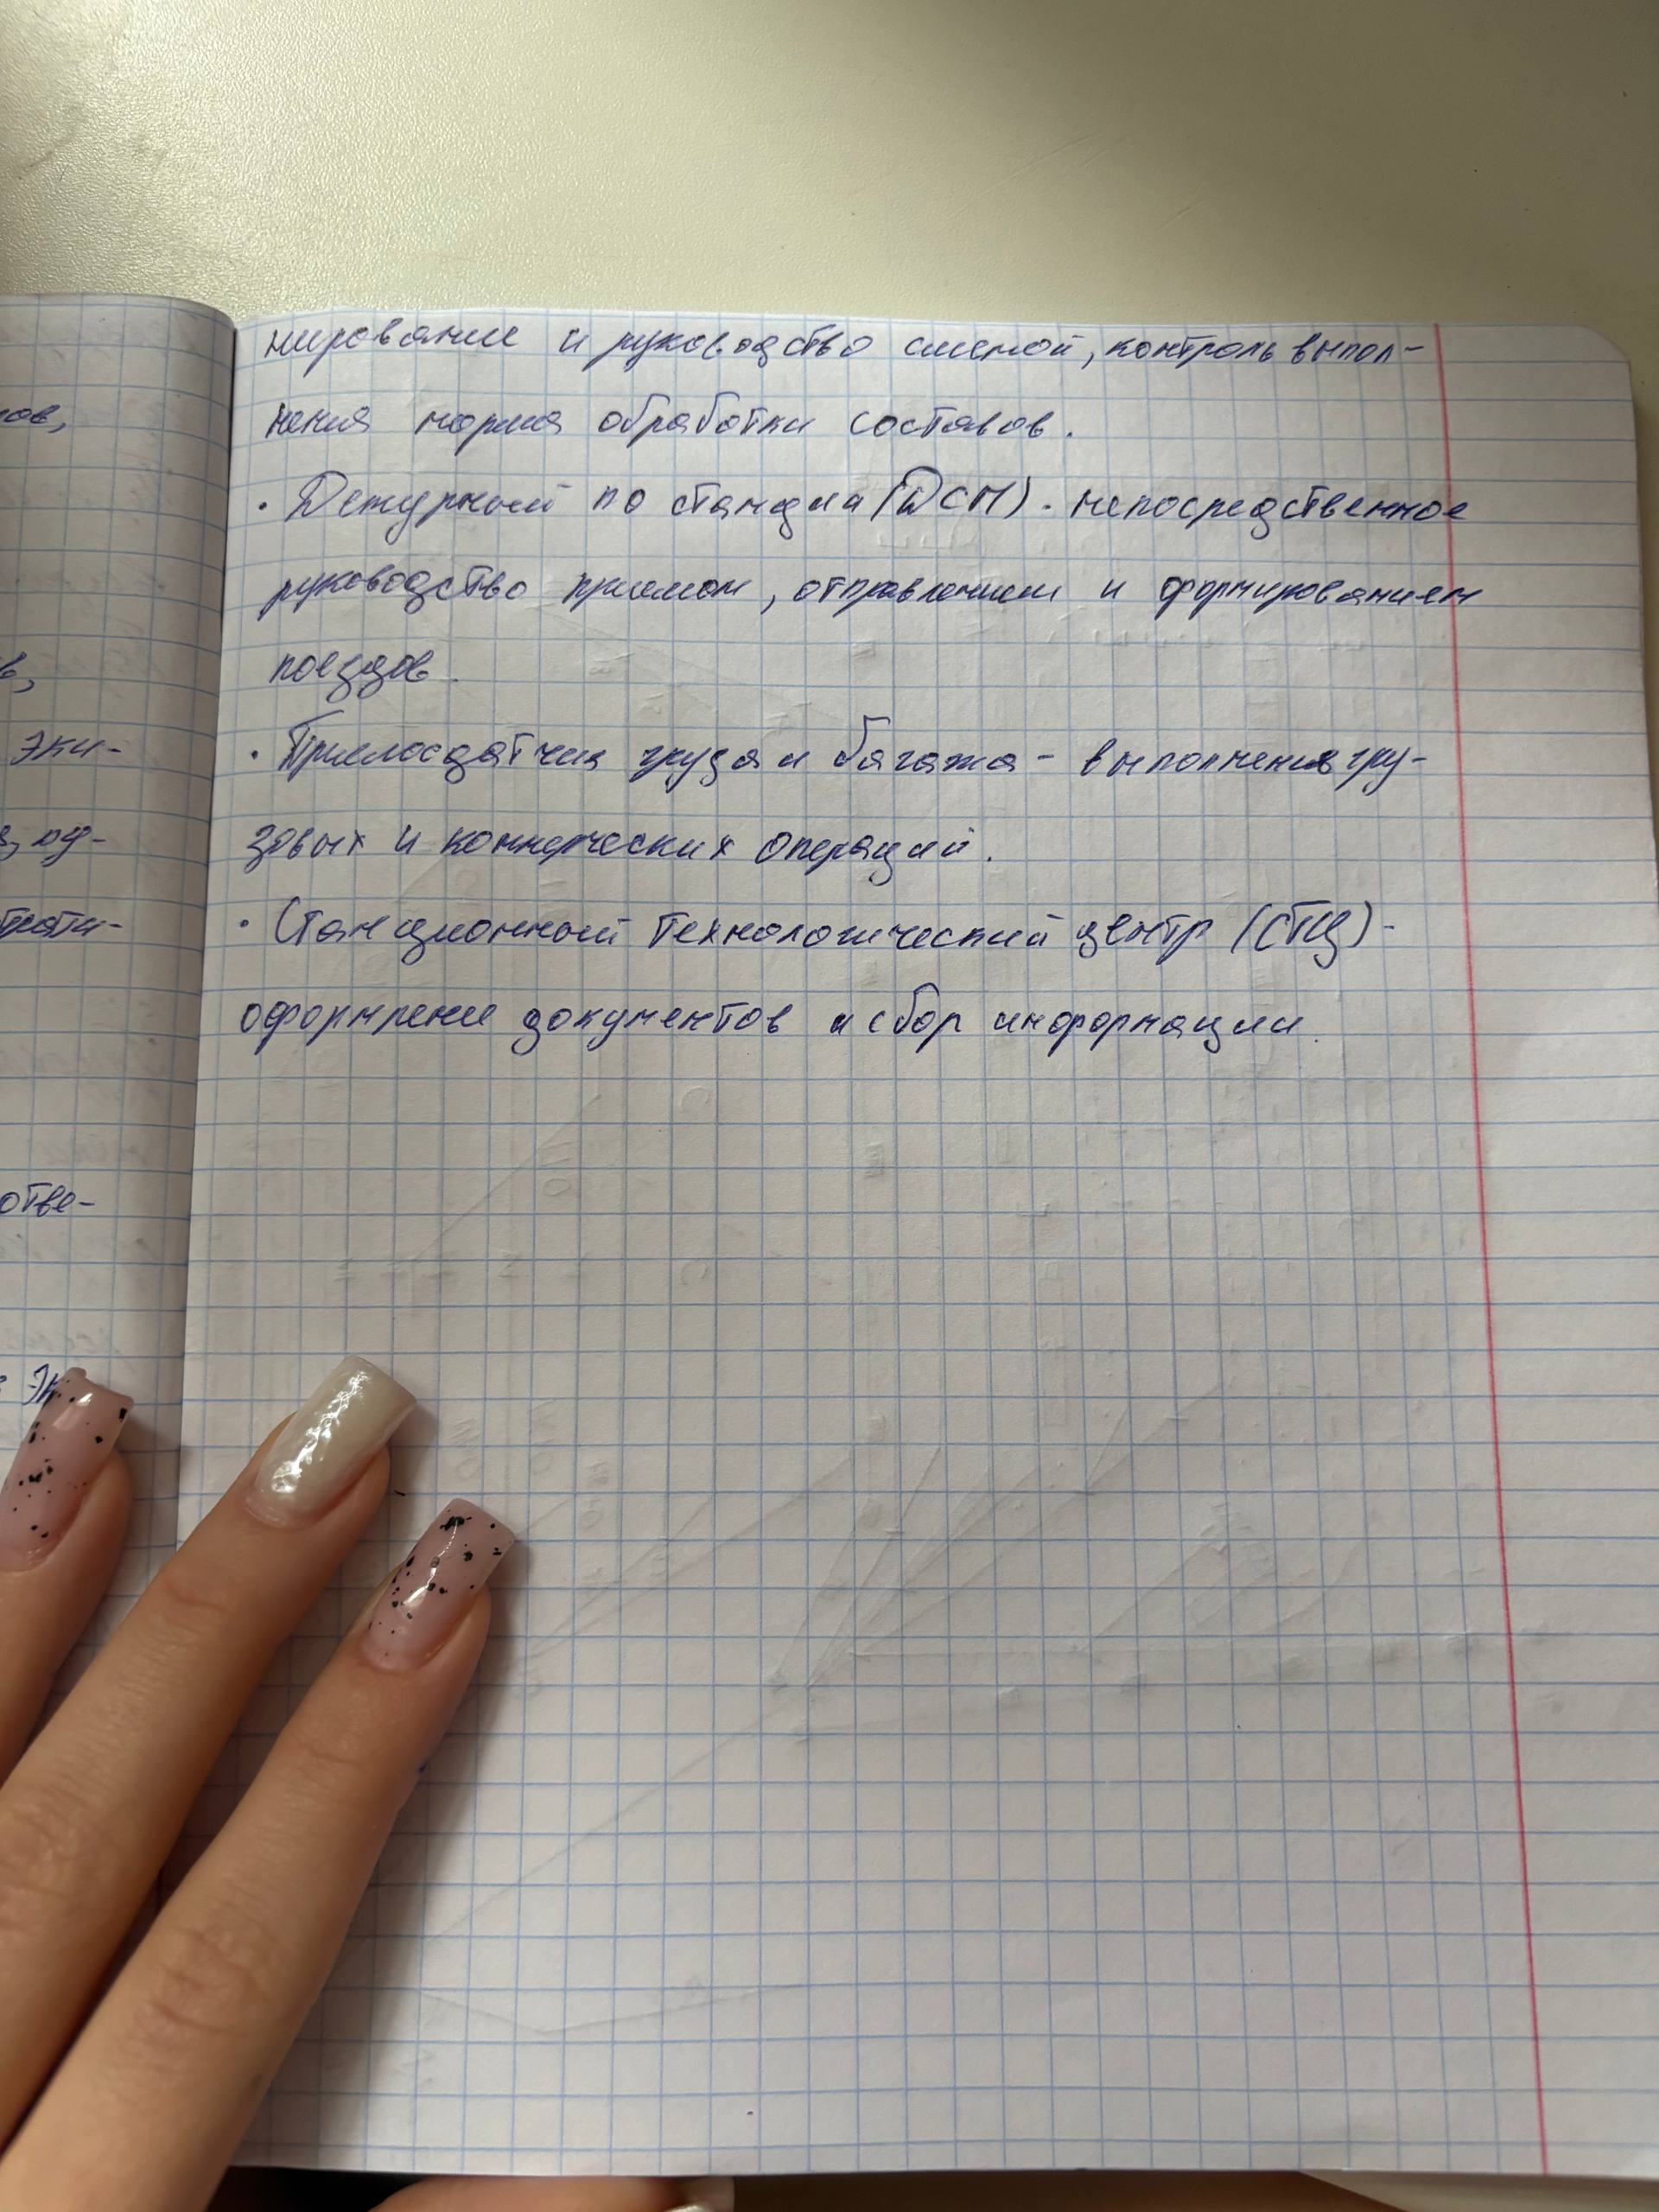 ов,
в,
эки-
отве-
нирование и руководство сменой, контроль выпол-
нения норма обработки составов.
· Дежурный по станции (ДСП) - непосредственное
руководство приемом, отправлением и формированием
поездов.
· Приемосдатчик груза и багажа - выполнения гру-
зовых и коммерческих операций.
· Станционный технологический центр (СТЦ) -
оформление документов и сбор информации.